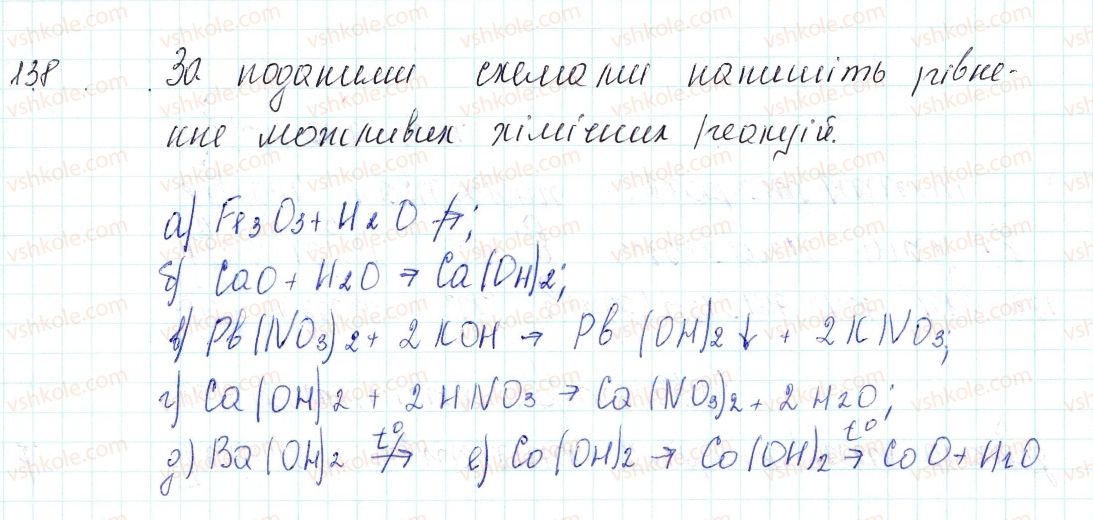 138. За поданими схемами напишіть рівне-
ння можливих хімічних реакцій.
а) Fe3O3 + H2O ↛;
б) CaO + H2O → Ca(OH)2;
в) Pb(NO3)2 + 2KOH → Pb(OH)2↓ + 2KNO3;
г) Ca(OH)2 + 2HNO3 → Ca(NO3)2 + 2H2O;
д) Ba(OH)2 t°↛ е) Co(OH)2 → Co(OH)2 t°→ CoO + H2O